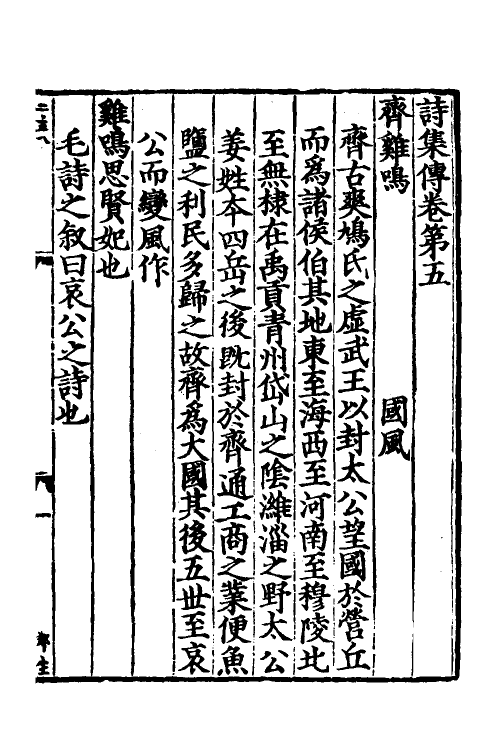 詩集傳卷第五
齊雞鳴 國風
齊古爽鳩氏之虛武王以封太公望國於營丘
而爲諸侯伯其地東至海西至河南至穆陵北
至無棣在禹貢青州岱山之陰濰淄之野太公
姜姓本四岳之後旣封於齊通工商之業便魚
鹽之利民多歸之故齊爲大國其後五世至哀
公而變風作
雞鳴思賢妃也
毛詩之敘曰哀公之詩也